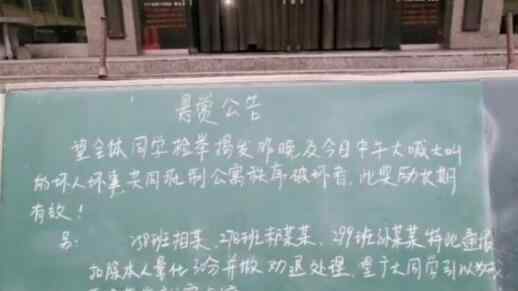 悬赏公告
望全体同学检举揭发昨晚及今日中午大喊大叫
的坏人坏事,共同抵制公寓秩序破坏者,此奖励长期
有效!
另: 258班相某、278班郝某某、299班孙某某特此通报
扣除本人量化 分并做劝退处理,望广大同学引以为戒